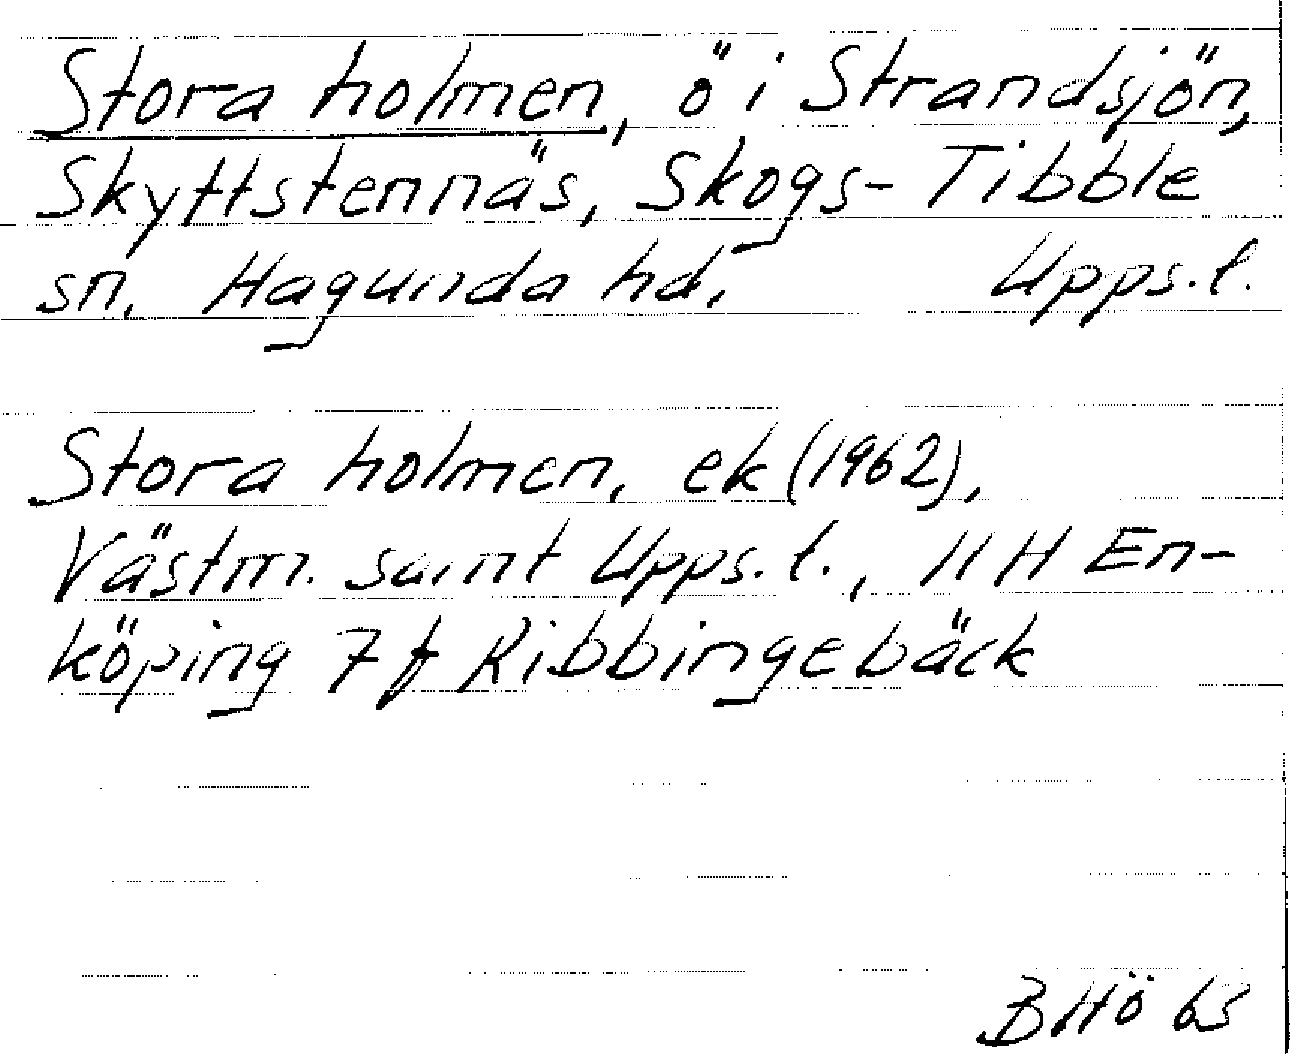 Stora holmen, ö i Strandsjön,
Skyttstennäs, Skogs-Tibble
sn, Hagunda hd, Upps.l.
Stora holmen, ek (1962),
Västm. samt Upps.l., 11 H En-
köping 7 f Ribbingebäck
BHö 65